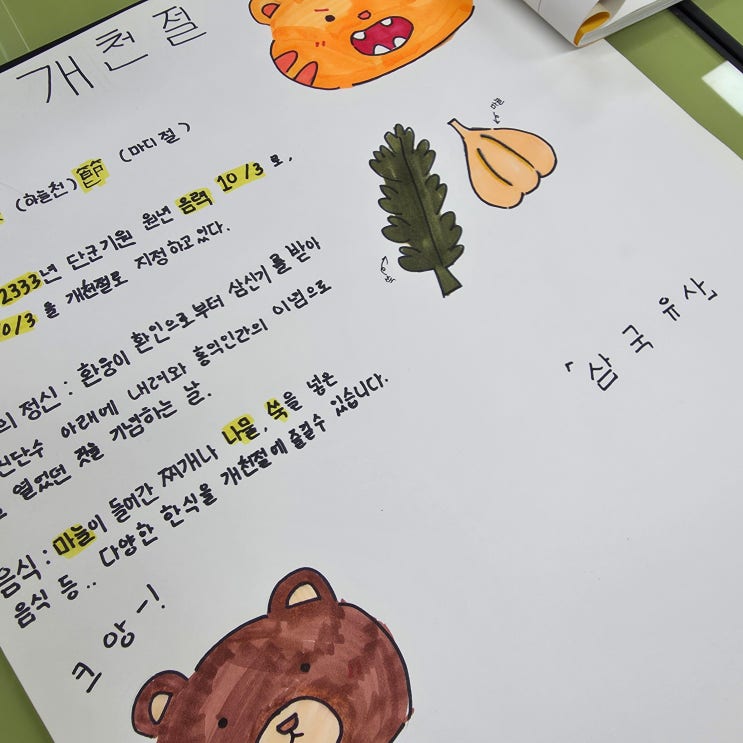 개천절
(하늘천) 節 (마디 절)
2333년 단군기원 원년 음력 10/3 로,
0/3 을 개천절로 지정하고 있다.
의 정신 : 환웅이 환인으로부터 삼신기를 받아
신단수 아래에 내려와 홍익인간의 이념으로
열었던 것을 기념하는 날.
음식 : 마늘이 들어간 찌개나 나물, 쑥을 넣은
음식 등.. 다양한 한식을 개천절에 즐길수 있습니다.
크앙-!
마늘
쑥
「삼국유사」